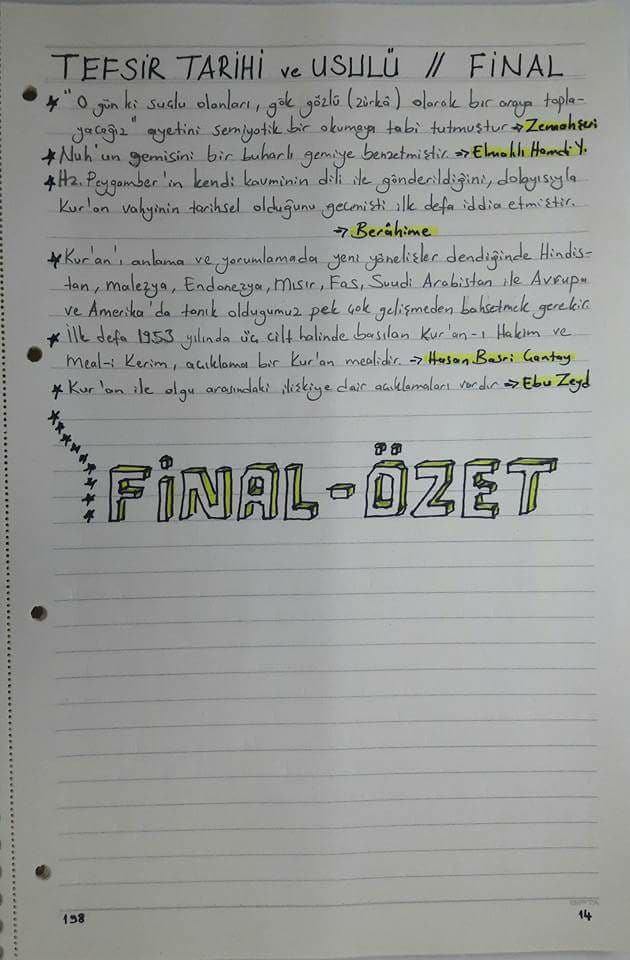 TEFSİR TARİHİ ve USULÜ // FİNAL
★ "O gün ki suçlu olanları, gök gözlü (zürkâ) olarak bir araya topla-
yacağız" ayetini semiyotik bir okumaya tabi tutmuştur → Zemahşeri
★ Nuh'un gemisini bir buharlı gemiye benzetmiştir. → Elmalılı Hamdi Y.
★ Hz. Peygamber'in kendi kavminin dili ile gönderildiğini, dolayısıyla
Kur'an vahyinin tarihsel olduğunu geçmişti ilk defa iddia etmiştir.
→ Berâhime
★ Kur'an'ı anlama ve yorumlamada yeni yönelişler dendiğinde Hindis-
tan, malezya, Endonezya, Mısır, Fas, Suudi Arabistan ile Avrupa
ve Amerika'da tanık olduğumuz pek çok gelişmeden bahsetmek gerekir.
★ İlk defa 1953 yılında üç cilt halinde basılan Kur'an-ı Hakim ve
Meal-i Kerim, açıklama bir Kur'an mealidir. → Hasan Basri Çantay
★ Kur'an ile olgu arasındaki ilişkiye dair açıklamaları vardır → Ebu Zeyd
FİNAL-ÖZET
198 14